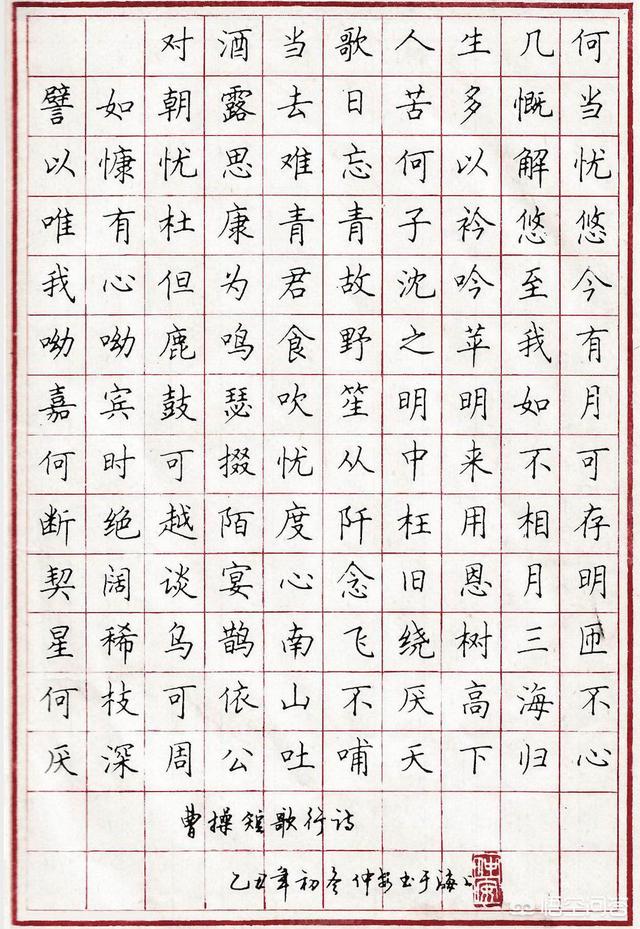 对酒当歌人生几何
譬如朝露去日苦多慨当
以慷忧思难忘何以解忧
唯有杜康青青子衿悠悠
我心但为君故沈吟至今
呦呦鹿鸣食野之苹我有
嘉宾鼓瑟吹笙明明如月
何时可掇忧从中来不可
断绝越陌度阡枉用相存
契阔谈宴心念旧恩月明
星稀乌鹊南飞绕树三匝
何枝可依山不厌高海不
厌深周公吐哺天下归心
曹操短歌行诗
乙丑年初冬仲安书于海上
仲安
悟空问答